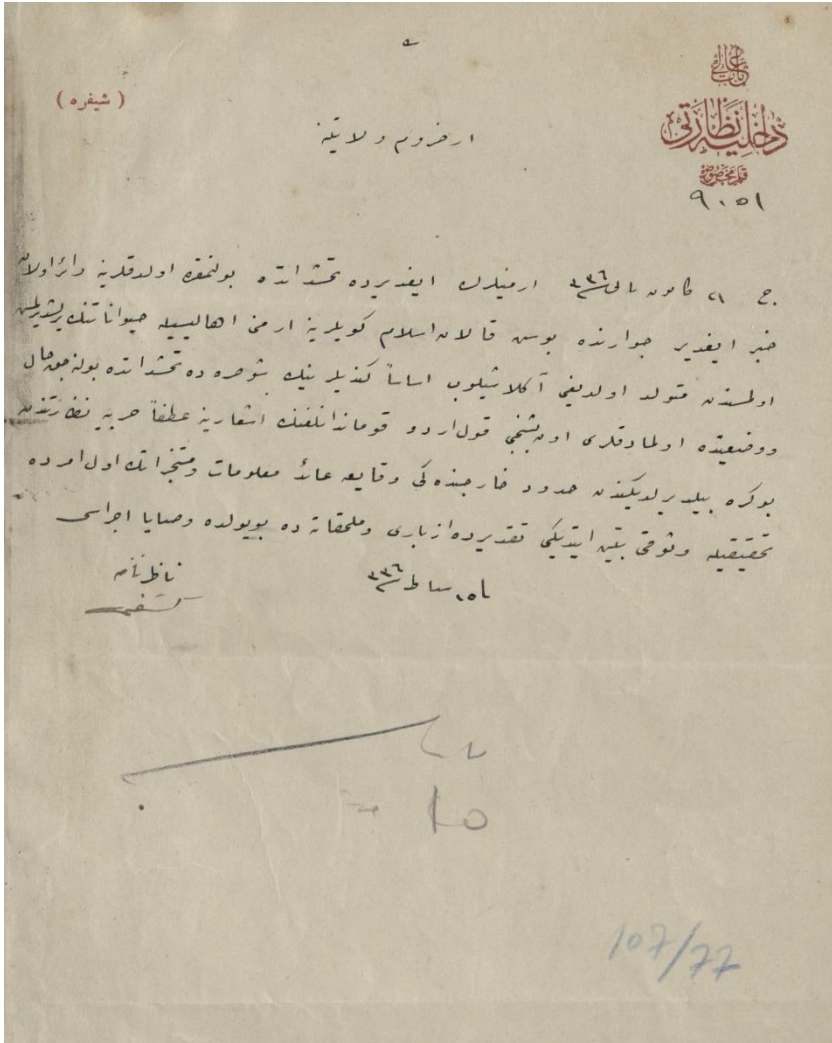 باب عالی
داخلیه نظارتی
قلم مخصوص
٩٠٥١
( شیفره )
ارضروم ولایتنه
ج ٢١ كانون ثانی ٣٣٦ ارمنیلرك ایغدیرده تحشداتده بولنمقده اولدقلرینه دائر اولان
خبر ایغدیر جوارنده بوش قالان اسلام كویلرینه ارمنی اهالیسیله حیواناتنك یرلشدیرلمش
اولمسندن متولد اولدیغی آكلاشیلوب اساساً كندیلرینك شو صره ده تحشداتده بولنه جق حال
ووضعیتده اولمادقلری اون بشنجی قول اردو قوماندانلغنك اشعارینه عطفاً حربیه نظارتندن
بو كره بیلدیرلدیكندن حدود خارجنده كی وقایعه عائد معلومات ومستخبراتك اول امرده
تحقیقیله وثوقی تبین ایتدیكی تقدیرده ازباری وملحقاته ده بو یولده وصایا اجراسی
ناظر نامنه
١٥ شباط ٣٣٦
١٥
107/77